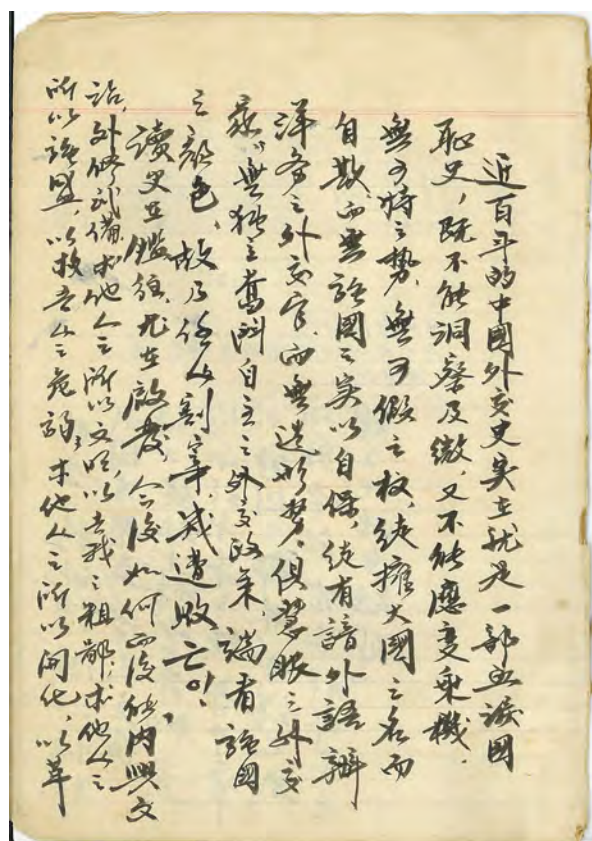 近百年的中國外交史实在就是一部血淚國
恥史，既不能洞察及微，又不能應變乘機，
無可恃之勢，無可假之权，徒擁大國之名而
自欺，而無強國之实以自保，徒有諳外語辦
洋务之外交官，而無造形势，俱慧眼之外交
家，無独立奮鬥自主之外交政策，端看強國
之顏色，故乃任人割宰，咸遭败亡！
讀史在鑑往，尤在啟發，今後如何而後能内興文
治，外修武備，求他人之所以文明，以去我之粗鄙；求他人之
所以強盛，以救吾人之危弱；求他人之所以開化，以革